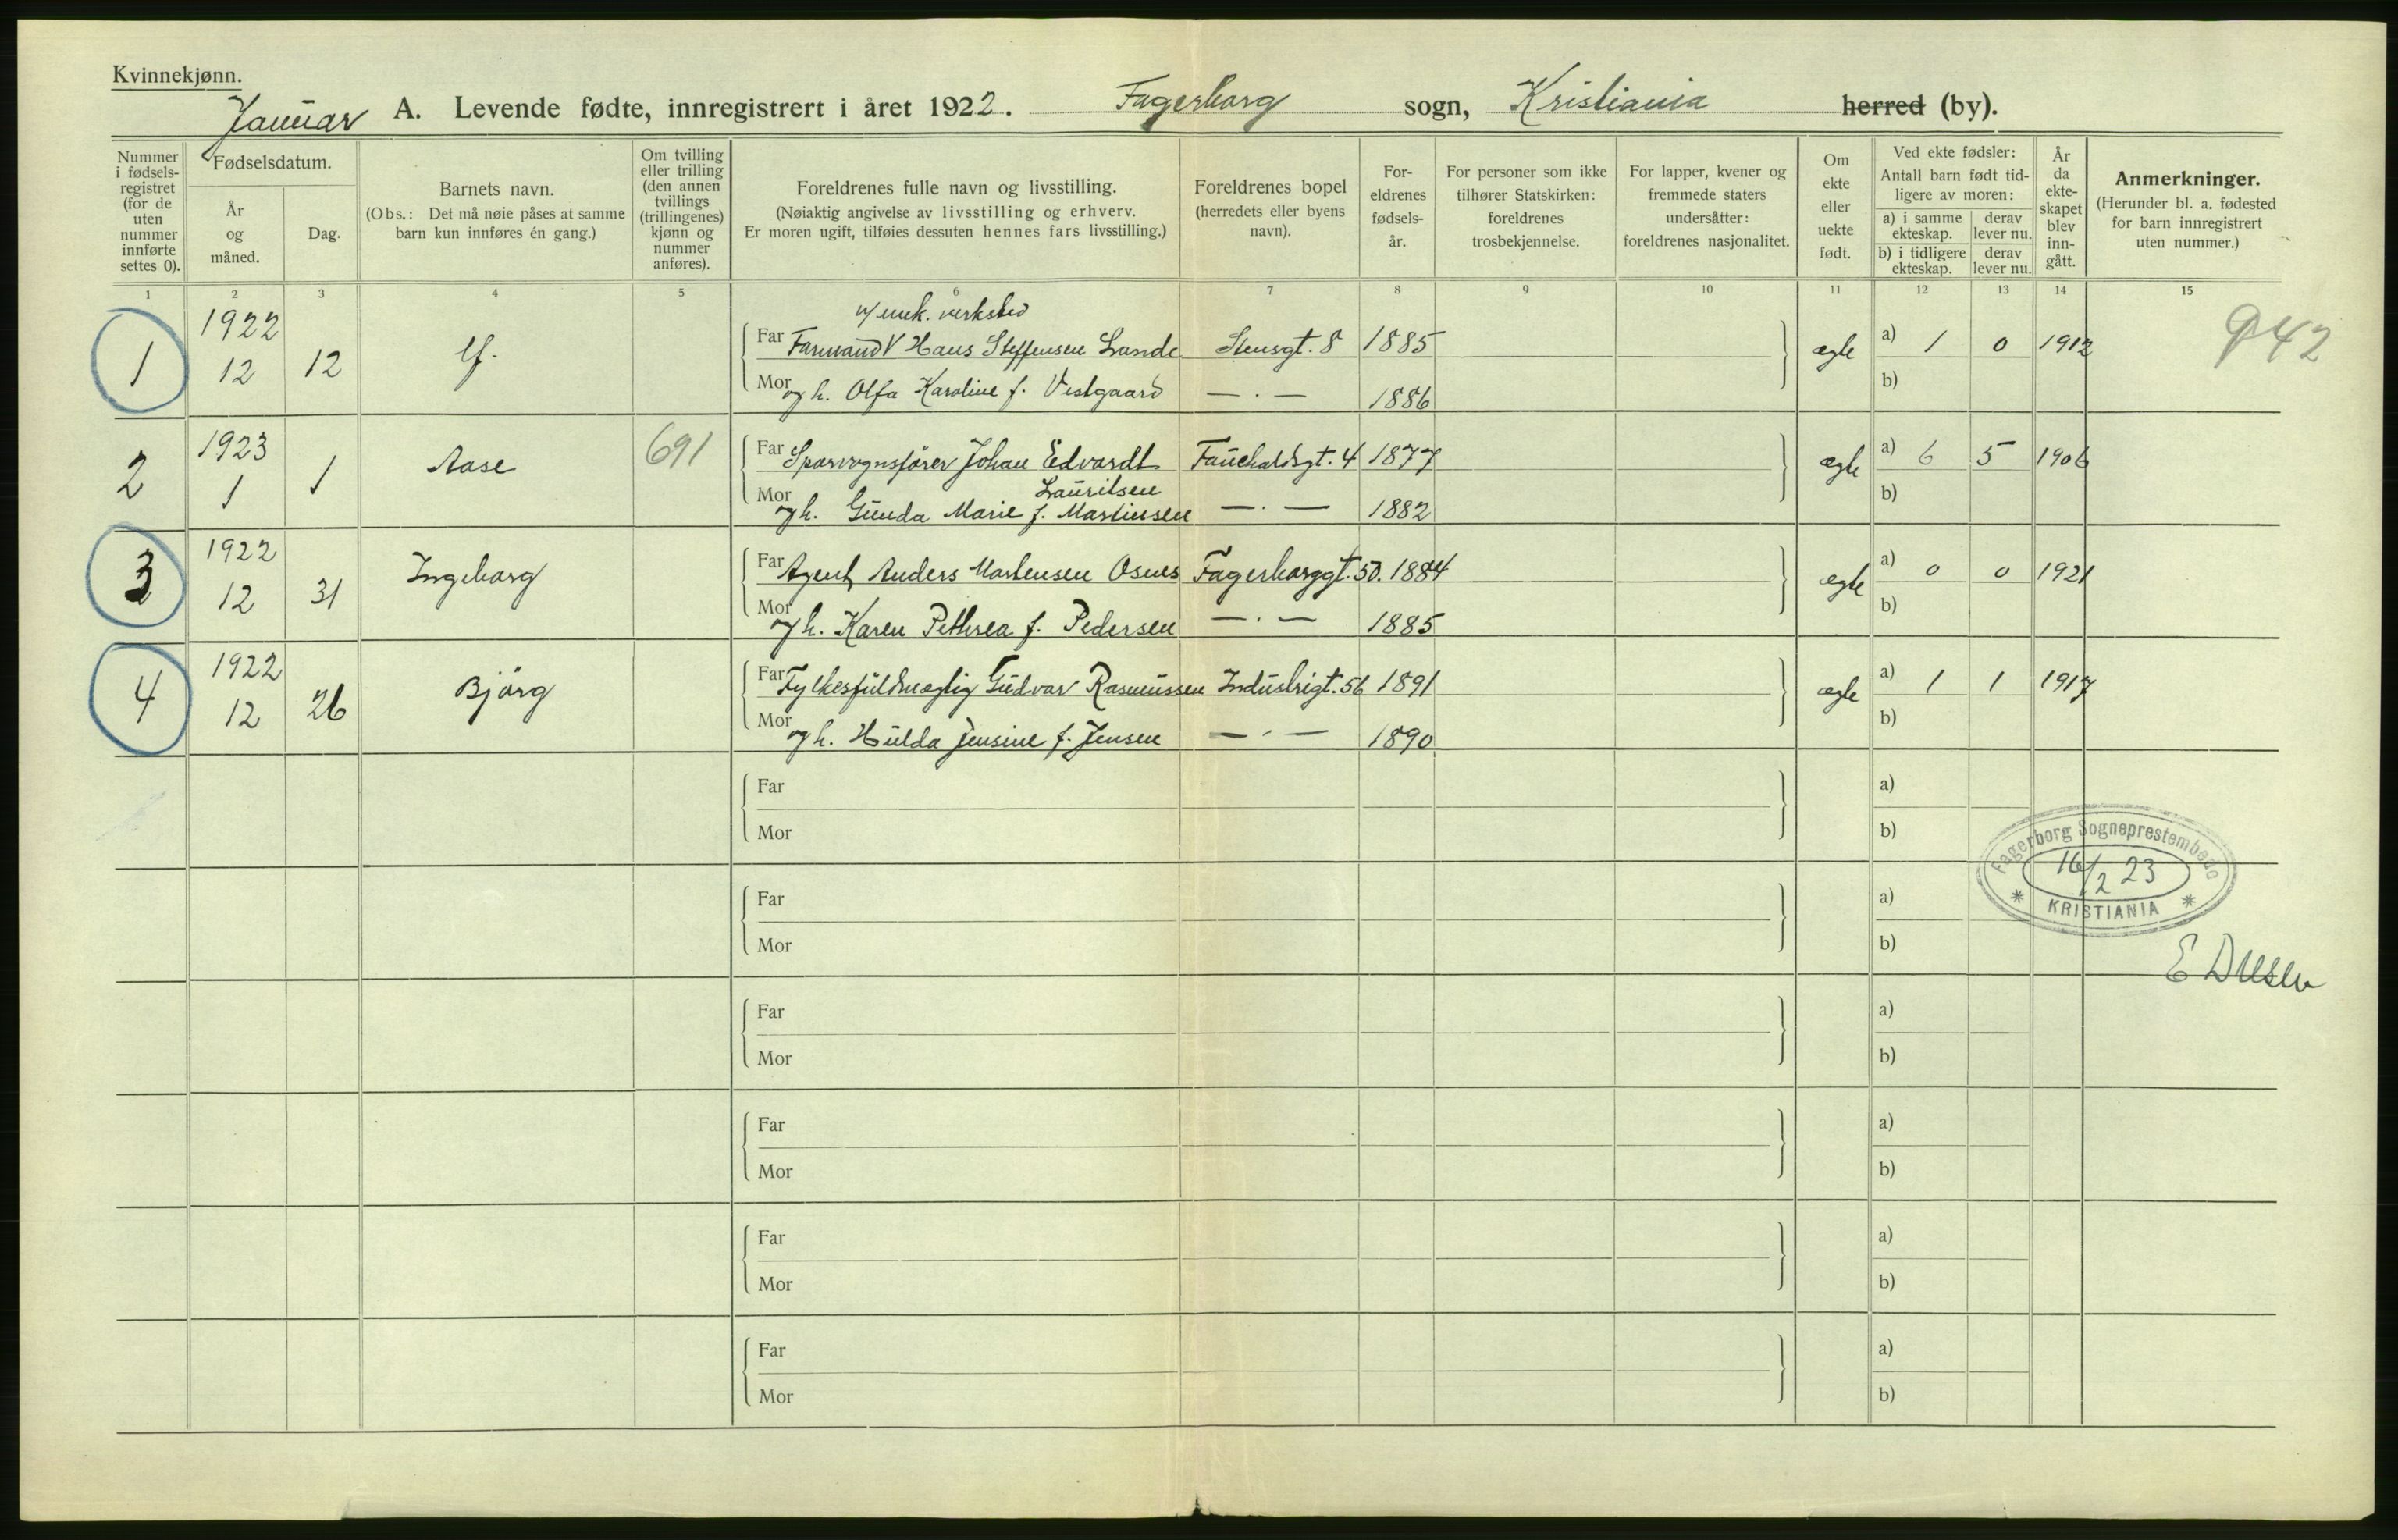 Kvinnekjønn.
Januar A. Levende fødte, innregistrert i året 1922. Fagerborg sogn, Kristiania herred (by).
Nummer i fødselsregistret (for de uten nummer innførte settes 0).
Fødselsdatum.
År og måned.
Dag.
Barnets navn.
(Obs.: Det må nøie påses at samme barn kun innføres én gang.)
Om tvilling eller trilling (den annen tvillings (trillingenes) kjønn og nummer anføres).
Foreldrenes fulle navn og livsstilling.
(Nøiaktig angivelse av livsstilling og erhverv.
Er moren ugift, tilføies dessuten hennes fars livsstilling.)
Foreldrenes bopel
(herredets eller byens navn).
Foreldrenes fødselsår.
For personer som ikke tilhører Statskirken: foreldrenes trosbekjennelse.
For lapper, kvener og fremmede staters undersåtter: foreldrenes nasjonalitet.
Om ekte eller uekte født.
Ved ekte fødsler:
Antall barn født tidligere av moren:
a) i samme ekteskap.
derav lever nu.
b) i tidligere ekteskap.
derav lever nu.
År da ekteskapet blev inngått.
Anmerkninger.
(Herunder bl. a. fødested for barn innregistrert uten nummer.)
1 2 3 4 5 6 7 8 9 10 11 12 13 14 15
v/ mek. verksted
1 1922 12 12 Uf. Far Formand V Hans Steffensen Lande Stensgt. 8 1885 ægte a) 1 0 1912 942
Mor og h. Olfa Karoline f. Vestgaard — . — 1886 b)
2 1923 1 1 Aase 691 Far Sporvognsfører Johan Edvardt Fauchaldsgt. 4 1877 ægte a) 6 5 1906
Lauritsen
Mor og h. Gunda Marie f. Martinsen — . — 1882 b)
3 1922 12 31 Ingeborg Far Agent Anders Mortensen Osnes Fagerborggt. 50. 1884 ægte a) 0 0 1921
Mor og h. Karen Pethrea f. Pedersen — . — 1885 b)
4 1922 12 26 Bjørg Far Fylkesfuldmægtig Gudvar Rasmussen Industrigt. 56 1891 ægte a) 1 1 1917
Mor og h. Hulda Jensine f. Jensen — . — 1890 b)
Far a)
Mor b)
Fagerborg Sogneprestembede
16/2 23
KRISTIANIA
Far a)
Mor b)
Far a)
Mor b)
Far a)
Mor b)
Far a)
Mor b)
Far a)
Mor b)